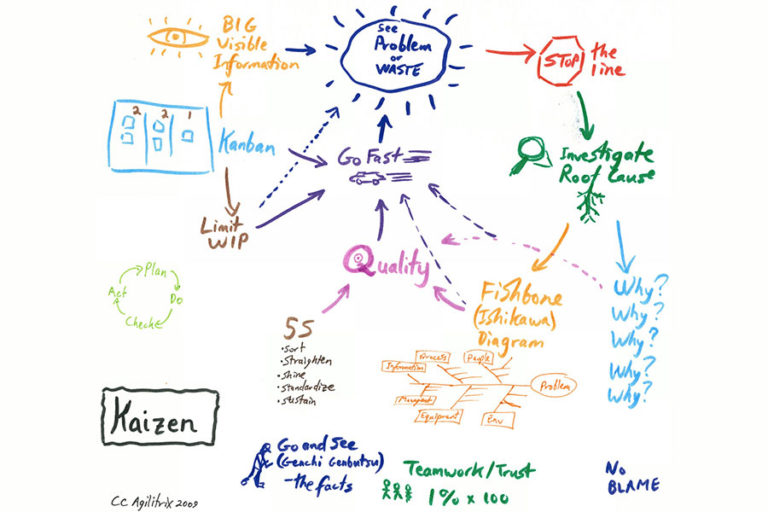 BIG
Visible
Information
See
Problem
or
WASTE
STOP
the
line
2
2
1
Kanban
Go Fast
Investigate
Root Cause
Limit
WIP
Plan
Do
Checke
Act
Quality
Fishbone
(Ishikawa)
Diagram
Why?
Why?
Why?
Why?
Why?
5S
•sort
•straighten
•shine
•standardize
•sustain
Process
People
Information
Problem
Equipment
Env
Kaizen
Go and See
(Genchi Genbutsu)
-the facts
Teamwork/Trust
1% x 100
No
BLAME
CC Agilitrix 2009